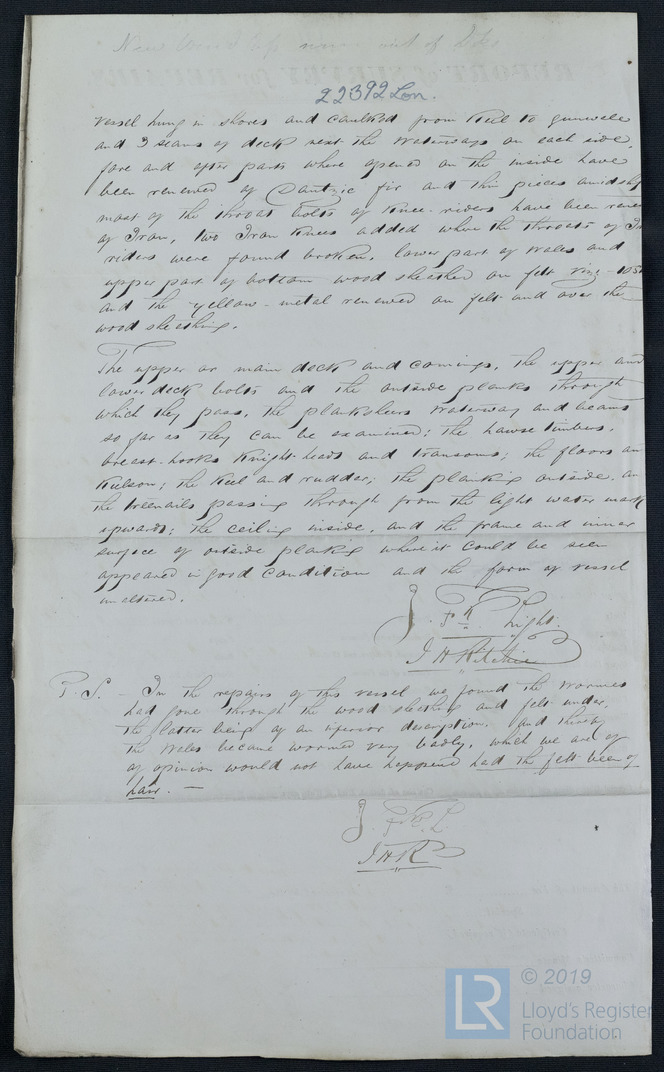 22392 Lon.
Vessel hung in shores and caulked from keel to gunwale
and 3 seams of deck next the waterways on each side,
fore and after parts where opened on the inside have
been renewed of Dantzic fir and thin pieces amidship
most of the throat bolts of knee riders have been rene
of Iron, two Iron knees added where the throats of I
riders were found broken, lower part of wales and
upper part of bottom wood sheathed on felt
and the yellow-metal renewed on felt and over the
wood sheathing.
The upper or main deck and comings, the upper and
lower deck bolts and the outside planks through
which they pass, the planksheers waterway and beams
so far as they can be examined; the hawse timbers,
breast-hooks knight-heads and transoms; the floors an
kelson; the keel and rudder; the planking outside, an
the treenails passing through from the light water mark
upwards; the ceiling inside, and the frame and inner
surface of outside planking where it could be seen
appeared in good condition and the form of vessel
unaltered.
Light.
J H Ritchie
P. S. - In the repairs of this vessel we found the wormes
had gone through the wood sheathing and felt under,
the latter being of an inferior description, and thereby
the Wales became wormed very badly, which we are of
of opinion would not have happened had the felt been of
hair. -
J H R
© 2019
LR
Lloyd's Register
Foundation
REPORT of SURVEY for REPAIRS